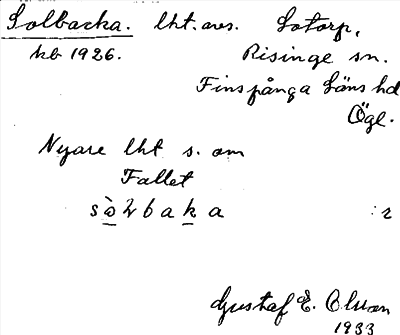 Solbacka. lht. avs. Sotorp,
kb 1926. Risinge sn.
Finspånga Läns hd
Ögl.
Nyare lht s. om
Fallet
baka : 2
Gustaf E. Olsson
1933